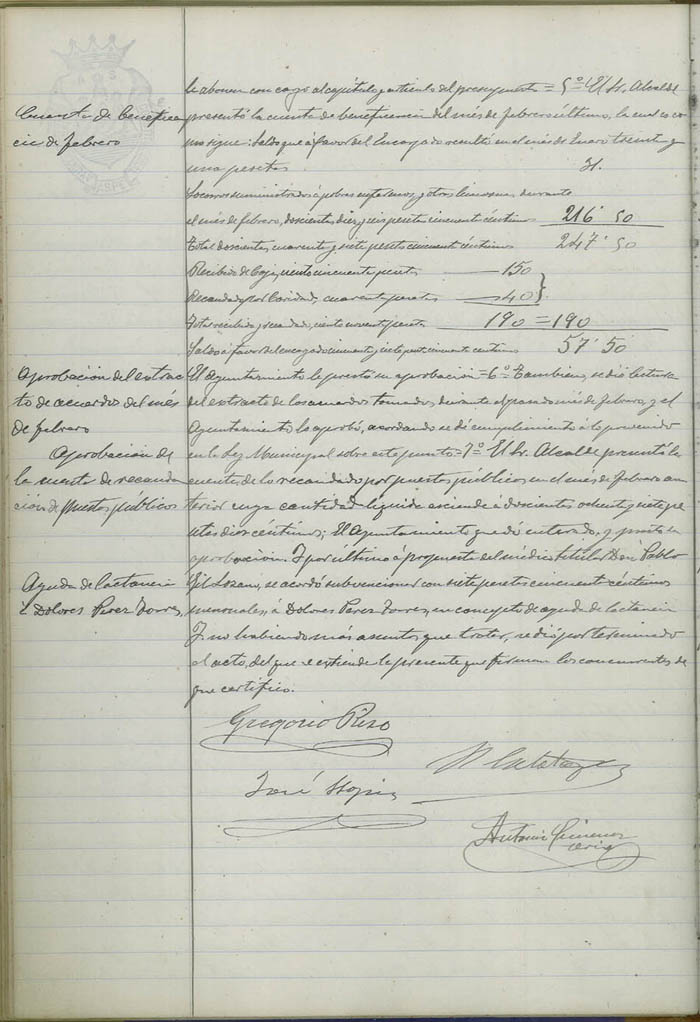 se abonen con cargo al capítulo y artículo del presupuesto = 5º = El Sr. Alcalde
Cuenta de beneficen
cia de febrero
presentó la cuenta de beneficencia del més de febrero último, la cual es co
mo sigue: Saldo que á favor del Encargado resulta en el més de Enero treinta y
una pesetas 31.
Socorros suministrados á pobres enfermos y otras limosnas durante
el més de febrero, doscientas diez y seis pesetas cincuenta céntimos 216'50
Total doscientas cuarenta y siete pesetas cincuenta céntimos 247'50
Recibido de Caja, ciento cincuenta pesetas 150
Recaudado por Caridad, cuarenta pesetas 40
Total recibido y recaudado, ciento noventa pesetas 190 = 190
Saldo á favor del encargado cincuenta y siete pesetas cincuenta céntimos 57'50
Aprobación del extrac
to de acuerdos del més
de febrero
El Ayuntamiento le prestó su aprobación = 6º = Tambien se dió lectura
del extracto de los acuerdos tomados durante el pasado més de febrero, y el
Ayuntamiento lo aprobó, acordando se dé cumplimiento á lo prevenido
en la Ley Municipal sobre este punto = 7º El Sr. Alcalde presentó la
Aprobación de
la cuenta de recauda
ción de puestos públicos
cuenta de lo recaudado por puestos públicos en el més de febrero an
terior cuya cantidad líquida asciende á doscientas ochenta y siete pe
setas diez céntimos; El Ayuntamiento quedó enterado, y prestó su
aprobación. Y por último á propuesta del médico titular Don Pablo
Ayuda de lactancia
á Dolores Perez Torres
Gil Lozano, se acordó subvencionar con siete pesetas cincuenta céntimos
mensuales, á Dolores Perez Torres, en concepto de ayuda de lactancia
Y no habiendo más asuntos que tratar, se dió por terminado
el acto, del que se extiende la presente que firman los concurrentes de
que certifico.
Gregorio Rizo
José
Antonio Gimenez